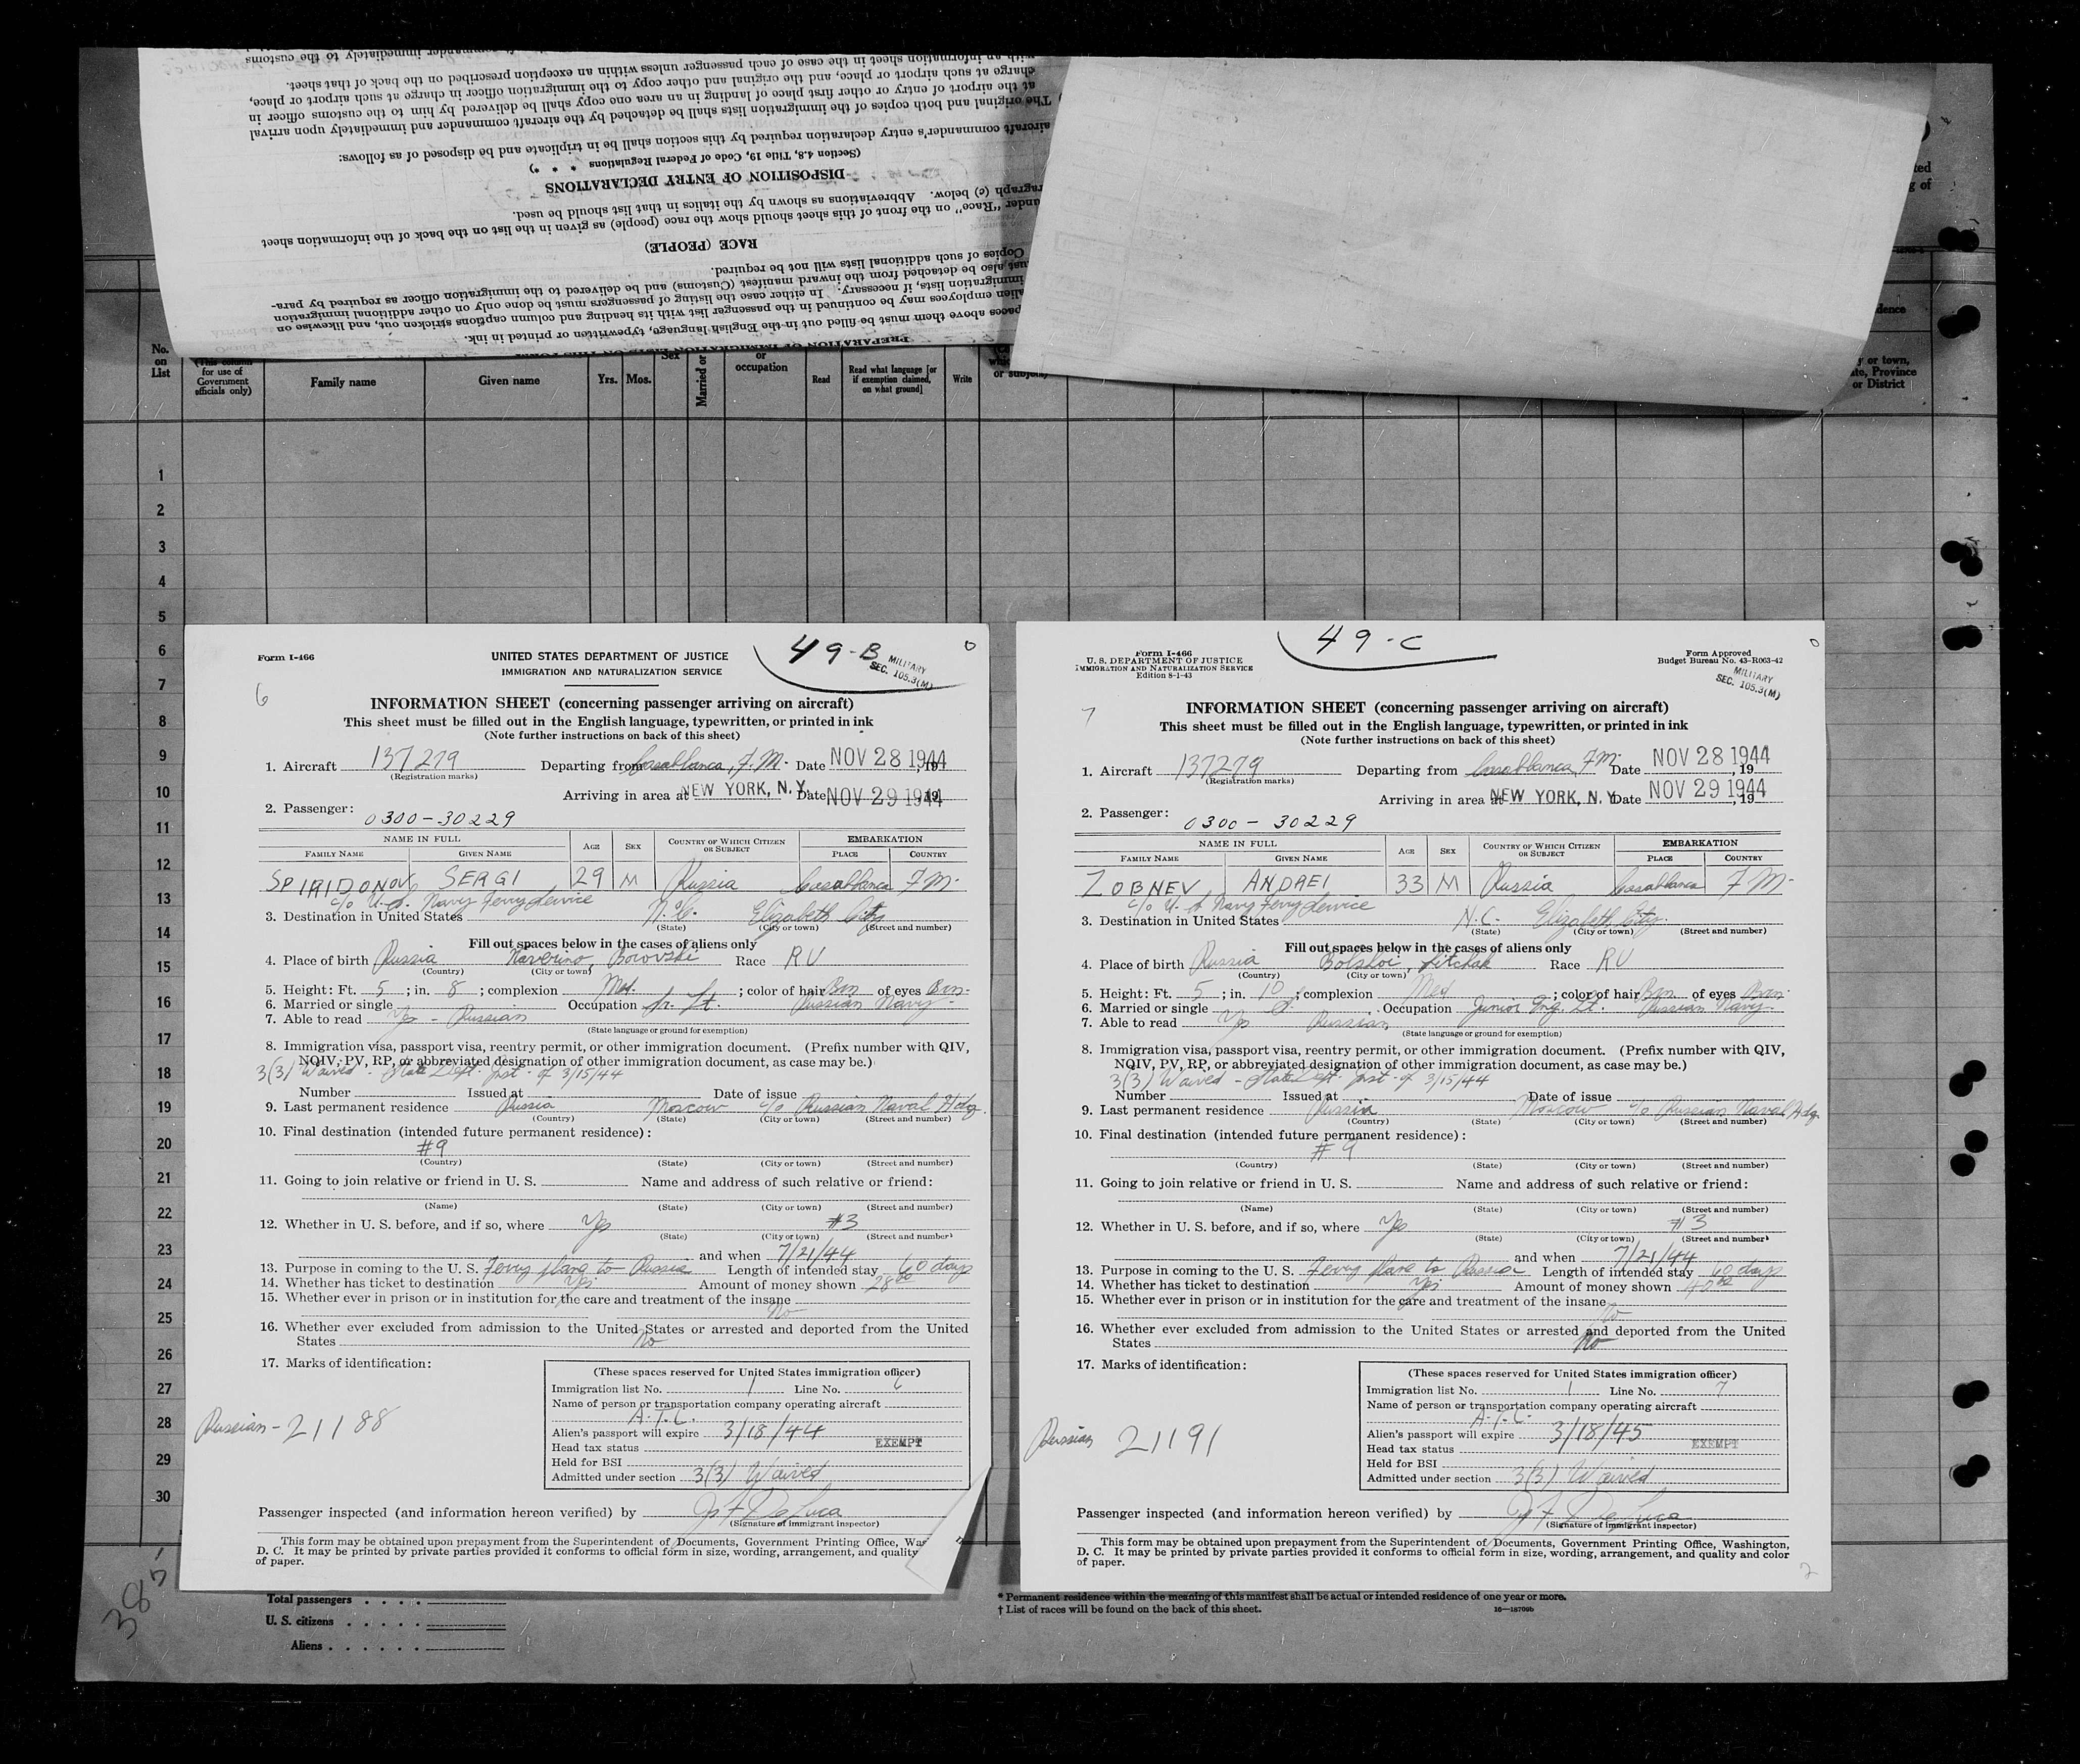 with an information sheet in the case of each passenger unless within an exception prescribed on the back of that sheet.
charge at such airport or place, and the original and other copy to the immigration officer in charge at such airport or place,
at the airport of entry or other first place of landing in an area one copy shall be delivered by him to the customs officer in
The original and both copies of the immigration lists shall be detached by the aircraft commander and immediately upon arrival
aircraft commander's entry declaration required by this section shall be in triplicate and be disposed of as follows:
(Section 4.8, Title 19, Code of Federal Regulations * * *)
DISPOSITION OF ENTRY DECLARATIONS
ragraph (c) below. Abbreviations as shown by the italics in that list should be used.
under "Race" on the front of this sheet should show the race (people) as given in the list on the back of the information sheet
RACE (PEOPLE)
Copies of such additional lists will not be required.
also be detached from the inward manifest (Customs) and be delivered to the immigration officer as required by para-
immigration lists, if necessary. In either case the listing of passengers must be done only on other additional immigration
alien employees may be continued in the passenger list with its heading and column captions stricken out, and likewise on
paces above them must be filled out in the English language, typewritten or printed in ink.
No. on List
(This column for use of Government officials only)
Family name
Given name
Yrs. Mos.
Sex
Married or
or occupation
Read
Read what language [or if exemption claimed, on what ground]
Write
or subject)
y or town, ate, Province or District
1
2
3
4
5
6
7
8
9
10
11
12
13
14
15
16
17
18
19
20
21
22
23
24
25
26
27
28
29
30
49-B
0
Form I-466
UNITED STATES DEPARTMENT OF JUSTICE
IMMIGRATION AND NATURALIZATION SERVICE
MILITARY
SEC. 105.3(M)
6
INFORMATION SHEET (concerning passenger arriving on aircraft)
This sheet must be filled out in the English language, typewritten, or printed in ink
(Note further instructions on back of this sheet)
1. Aircraft 137279 Departing from Casablanca, F.M. Date NOV 28 1944, 19
(Registration marks)
Arriving in area at NEW YORK, N.Y. Date NOV 29 1944, 19
2. Passenger: 0300-30229
NAME IN FULL AGE SEX COUNTRY OF WHICH CITIZEN OR SUBJECT EMBARKATION
FAMILY NAME GIVEN NAME PLACE COUNTRY
SPIRIDONOV SERGI 29 M Russia Casablanca F.M.
c/o U.S. Navy Ferry Service
3. Destination in United States N.C. Elizabeth City
(State) (City or town) (Street and number)
Fill out spaces below in the cases of aliens only
4. Place of birth Russia Kaverino, Borovski Race RU
(Country) (City or town)
5. Height: Ft. 5; in. 8; complexion Med.; color of hair Brn of eyes Brn.
6. Married or single Occupation Sr. Lt. Russian Navy
7. Able to read Yes - Russian
(State language or ground for exemption)
8. Immigration visa, passport visa, reentry permit, or other immigration document. (Prefix number with QIV,
NQIV, PV, RP, or abbreviated designation of other immigration document, as case may be.)
3(3) Waived - State Dept. Inst. of 3/15/44
Number Issued at Date of issue
9. Last permanent residence Russia Moscow c/o Russian Naval Hdq.
(Country) (State) (City or town) (Street and number)
10. Final destination (intended future permanent residence):
#9
(Country) (State) (City or town) (Street and number)
11. Going to join relative or friend in U. S. Name and address of such relative or friend:
(Name) (State) (City or town) (Street and number)
12. Whether in U. S. before, and if so, where Yes #3
(State) (City or town) (Street and number)
and when 7/21/44
13. Purpose in coming to the U. S. Ferry plane to Russia Length of intended stay 60 days
14. Whether has ticket to destination Yes Amount of money shown 28.00
15. Whether ever in prison or in institution for the care and treatment of the insane
No
16. Whether ever excluded from admission to the United States or arrested and deported from the United
States No
17. Marks of identification:
Russian-21188
(These spaces reserved for United States immigration officer)
Immigration list No. 1 Line No. 6
Name of person or transportation company operating aircraft
A.T.C.
Alien's passport will expire 3/18/44
Head tax status EXEMPT
Held for BSI
Admitted under section 3(3) Waived
Passenger inspected (and information hereon verified) by Jos F DeLuca
(Signature of immigrant inspector)
This form may be obtained upon prepayment from the Superintendent of Documents, Government Printing Office, Was
D. C. It may be printed by private parties provided it conforms to official form in size, wording, arrangement, and quality
of paper.
49-C
0
Form I-466
U. S. DEPARTMENT OF JUSTICE
IMMIGRATION AND NATURALIZATION SERVICE
Edition 8-1-43
Form Approved
Budget Bureau No. 43-R063-42
MILITARY
SEC. 105.3(M)
7
INFORMATION SHEET (concerning passenger arriving on aircraft)
This sheet must be filled out in the English language, typewritten, or printed in ink
(Note further instructions on back of this sheet)
1. Aircraft 137279 Departing from Casablanca, F.M. Date NOV 28 1944, 19
(Registration marks)
Arriving in area at NEW YORK, N.Y. Date NOV 29 1944, 19
2. Passenger: 0300-30229
NAME IN FULL AGE SEX COUNTRY OF WHICH CITIZEN OR SUBJECT EMBARKATION
FAMILY NAME GIVEN NAME PLACE COUNTRY
ZOBNEV ANDREI 33 M Russia Casablanca F.M.
c/o U.S. Navy Ferry Service
3. Destination in United States N.C. Elizabeth City
(State) (City or town) (Street and number)
Fill out spaces below in the cases of aliens only
4. Place of birth Russia Bolshoi, Race RU
(Country) (City or town)
5. Height: Ft. 5; in. 10; complexion Med; color of hair Brn. of eyes Brn.
6. Married or single S. Occupation Junior Eng. Lt. Russian Navy
7. Able to read Yes Russian
(State language or ground for exemption)
8. Immigration visa, passport visa, reentry permit, or other immigration document. (Prefix number with QIV,
NQIV, PV, RP, or abbreviated designation of other immigration document, as case may be.)
3(3) Waived - State Dept. Inst. of 3/15/44
Number Issued at Date of issue
9. Last permanent residence Russia Moscow c/o Russian Naval Hdq.
(Country) (State) (City or town) (Street and number)
10. Final destination (intended future permanent residence):
#9
(Country) (State) (City or town) (Street and number)
11. Going to join relative or friend in U. S. Name and address of such relative or friend:
(Name) (State) (City or town) (Street and number)
12. Whether in U. S. before, and if so, where Yes #3
(State) (City or town) (Street and number)
and when 7/21/44
13. Purpose in coming to the U. S. Ferry plane to Russia Length of intended stay 60 days
14. Whether has ticket to destination Yes Amount of money shown 40.00
15. Whether ever in prison or in institution for the care and treatment of the insane
No
16. Whether ever excluded from admission to the United States or arrested and deported from the United
States No
17. Marks of identification:
Russian 21191
(These spaces reserved for United States immigration officer)
Immigration list No. 1 Line No. 7
Name of person or transportation company operating aircraft
A.T.C.
Alien's passport will expire 3/18/45
Head tax status EXEMPT
Held for BSI
Admitted under section 3(3) Waived
Passenger inspected (and information hereon verified) by Jos F DeLuca
(Signature of immigrant inspector)
This form may be obtained upon prepayment from the Superintendent of Documents, Government Printing Office, Washington,
D. C. It may be printed by private parties provided it conforms to official form in size, wording, arrangement, and quality and color
of paper.
2
385
Total passengers . . . .
U. S. citizens . . . . .
Aliens . . . . . .
* Permanent residence within the meaning of this manifest shall be actual or intended residence of one year or more.
† List of races will be found on the back of this sheet.
16—18709b